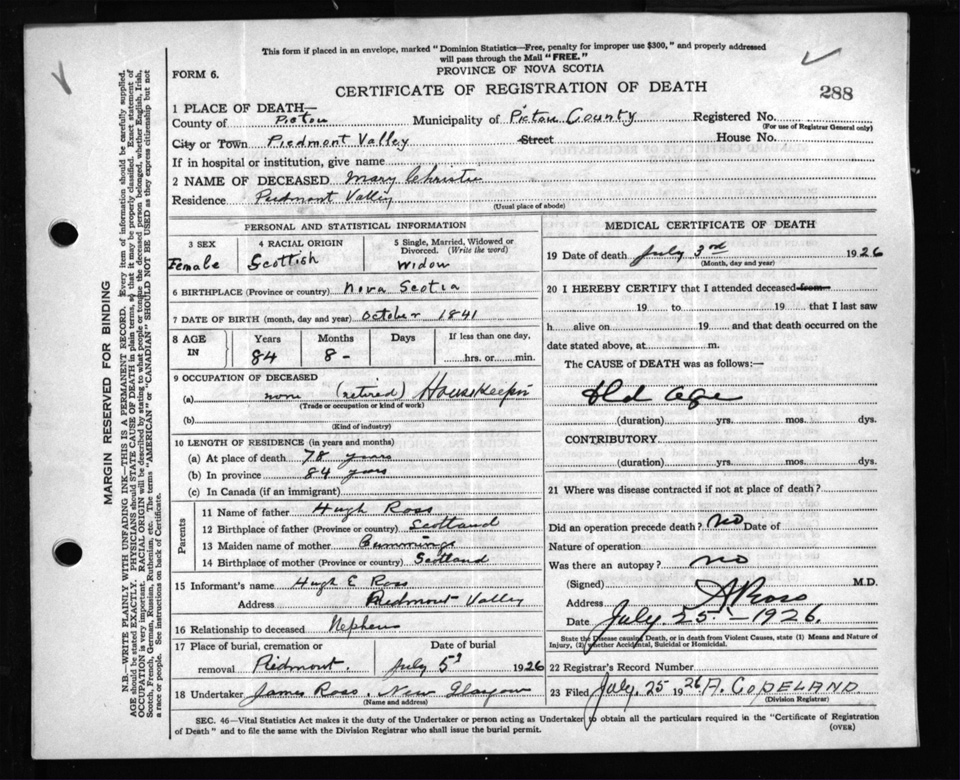 This form if placed in an envelope, marked "Dominion Statistics—Free, penalty for improper use $300," and properly addressed
will pass through the Mail "FREE."
PROVINCE OF NOVA SCOTIA
FORM 6.
CERTIFICATE OF REGISTRATION OF DEATH
288
1 PLACE OF DEATH—
County of Pictou Municipality of Pictou County Registered No.
(For use of Registrar General only)
City or Town Piedmont Valley Street House No.
If in hospital or institution, give name
2 NAME OF DECEASED Mary Christie
Residence Piedmont Valley
(Usual place of abode)
PERSONAL AND STATISTICAL INFORMATION
3 SEX 4 RACIAL ORIGIN 5 Single, Married, Widowed or
Divorced. (Write the word)
Female Scottish Widow
6 BIRTHPLACE (Province or country) Nova Scotia
7 DATE OF BIRTH (month, day and year) October 1841
8 AGE IN Years Months Days If less than one day,
84 8 - hrs. or min.
9 OCCUPATION OF DECEASED
(a) none (retired) Housekeeper
(Trade or occupation or kind of work)
(b)
(Kind of industry)
10 LENGTH OF RESIDENCE (in years and months)
(a) At place of death 78 years
(b) In province 84 years
(c) In Canada (if an immigrant)
Parents
11 Name of father Hugh Ross
12 Birthplace of father (Province or country) Scotland
13 Maiden name of mother Cummings
14 Birthplace of mother (Province or country) Scotland
15 Informant's name Hugh E Ross
Address Piedmont Valley
16 Relationship to deceased Nephew
17 Place of burial, cremation or Date of burial
removal Piedmont. July 5th 1926
18 Undertaker James Ross. New Glasgow
(Name and address)
MEDICAL CERTIFICATE OF DEATH
19 Date of death July 3rd 1926
(Month, day and year)
20 I HEREBY CERTIFY that I attended deceased from
19 to 19 that I last saw
h alive on 19 and that death occurred on the
date stated above, at m.
The CAUSE of DEATH was as follows:—
Old age
(duration) yrs. mos. dys.
CONTRIBUTORY
(duration) yrs. mos. dys.
21 Where was disease contracted if not at place of death?
Did an operation precede death? No Date of
Nature of operation
Was there an autopsy? no
(Signed) A Ross M.D.
Address
Date July 25 - 1926.
State the Disease causing Death, or in death from Violent Causes, state (1) Means and Nature of
Injury, (2) whether Accidental, Suicidal or Homicidal.
22 Registrar's Record Number
23 Filed July. 25 1926 A. COPELAND
(Division Registrar)
SEC. 46—Vital Statistics Act makes it the duty of the Undertaker or person acting as Undertaker to obtain all the particulars required in the "Certificate of Registration
of Death" and to file the same with the Division Registrar who shall issue the burial permit.
(OVER)
MARGIN RESERVED FOR BINDING
N.B.—WRITE PLAINLY WITH UNFADING INK—THIS IS A PERMANENT RECORD. Every item of information should be carefully supplied.
AGE should be stated EXACTLY. PHYSICIANS should STATE CAUSE OF DEATH in plain terms, so that it may be properly classified. Exact statement of
OCCUPATION is very important. RACIAL ORIGIN will be described by stating to what people or tongue the deceased person belonged, whether English, Irish,
Scotch, French, German, Russian, Ruthenian, etc. The terms "AMERICAN" or "CANADIAN" SHOULD NOT BE USED as they express citizenship but not
a race or people. See instructions on back of Certificate.